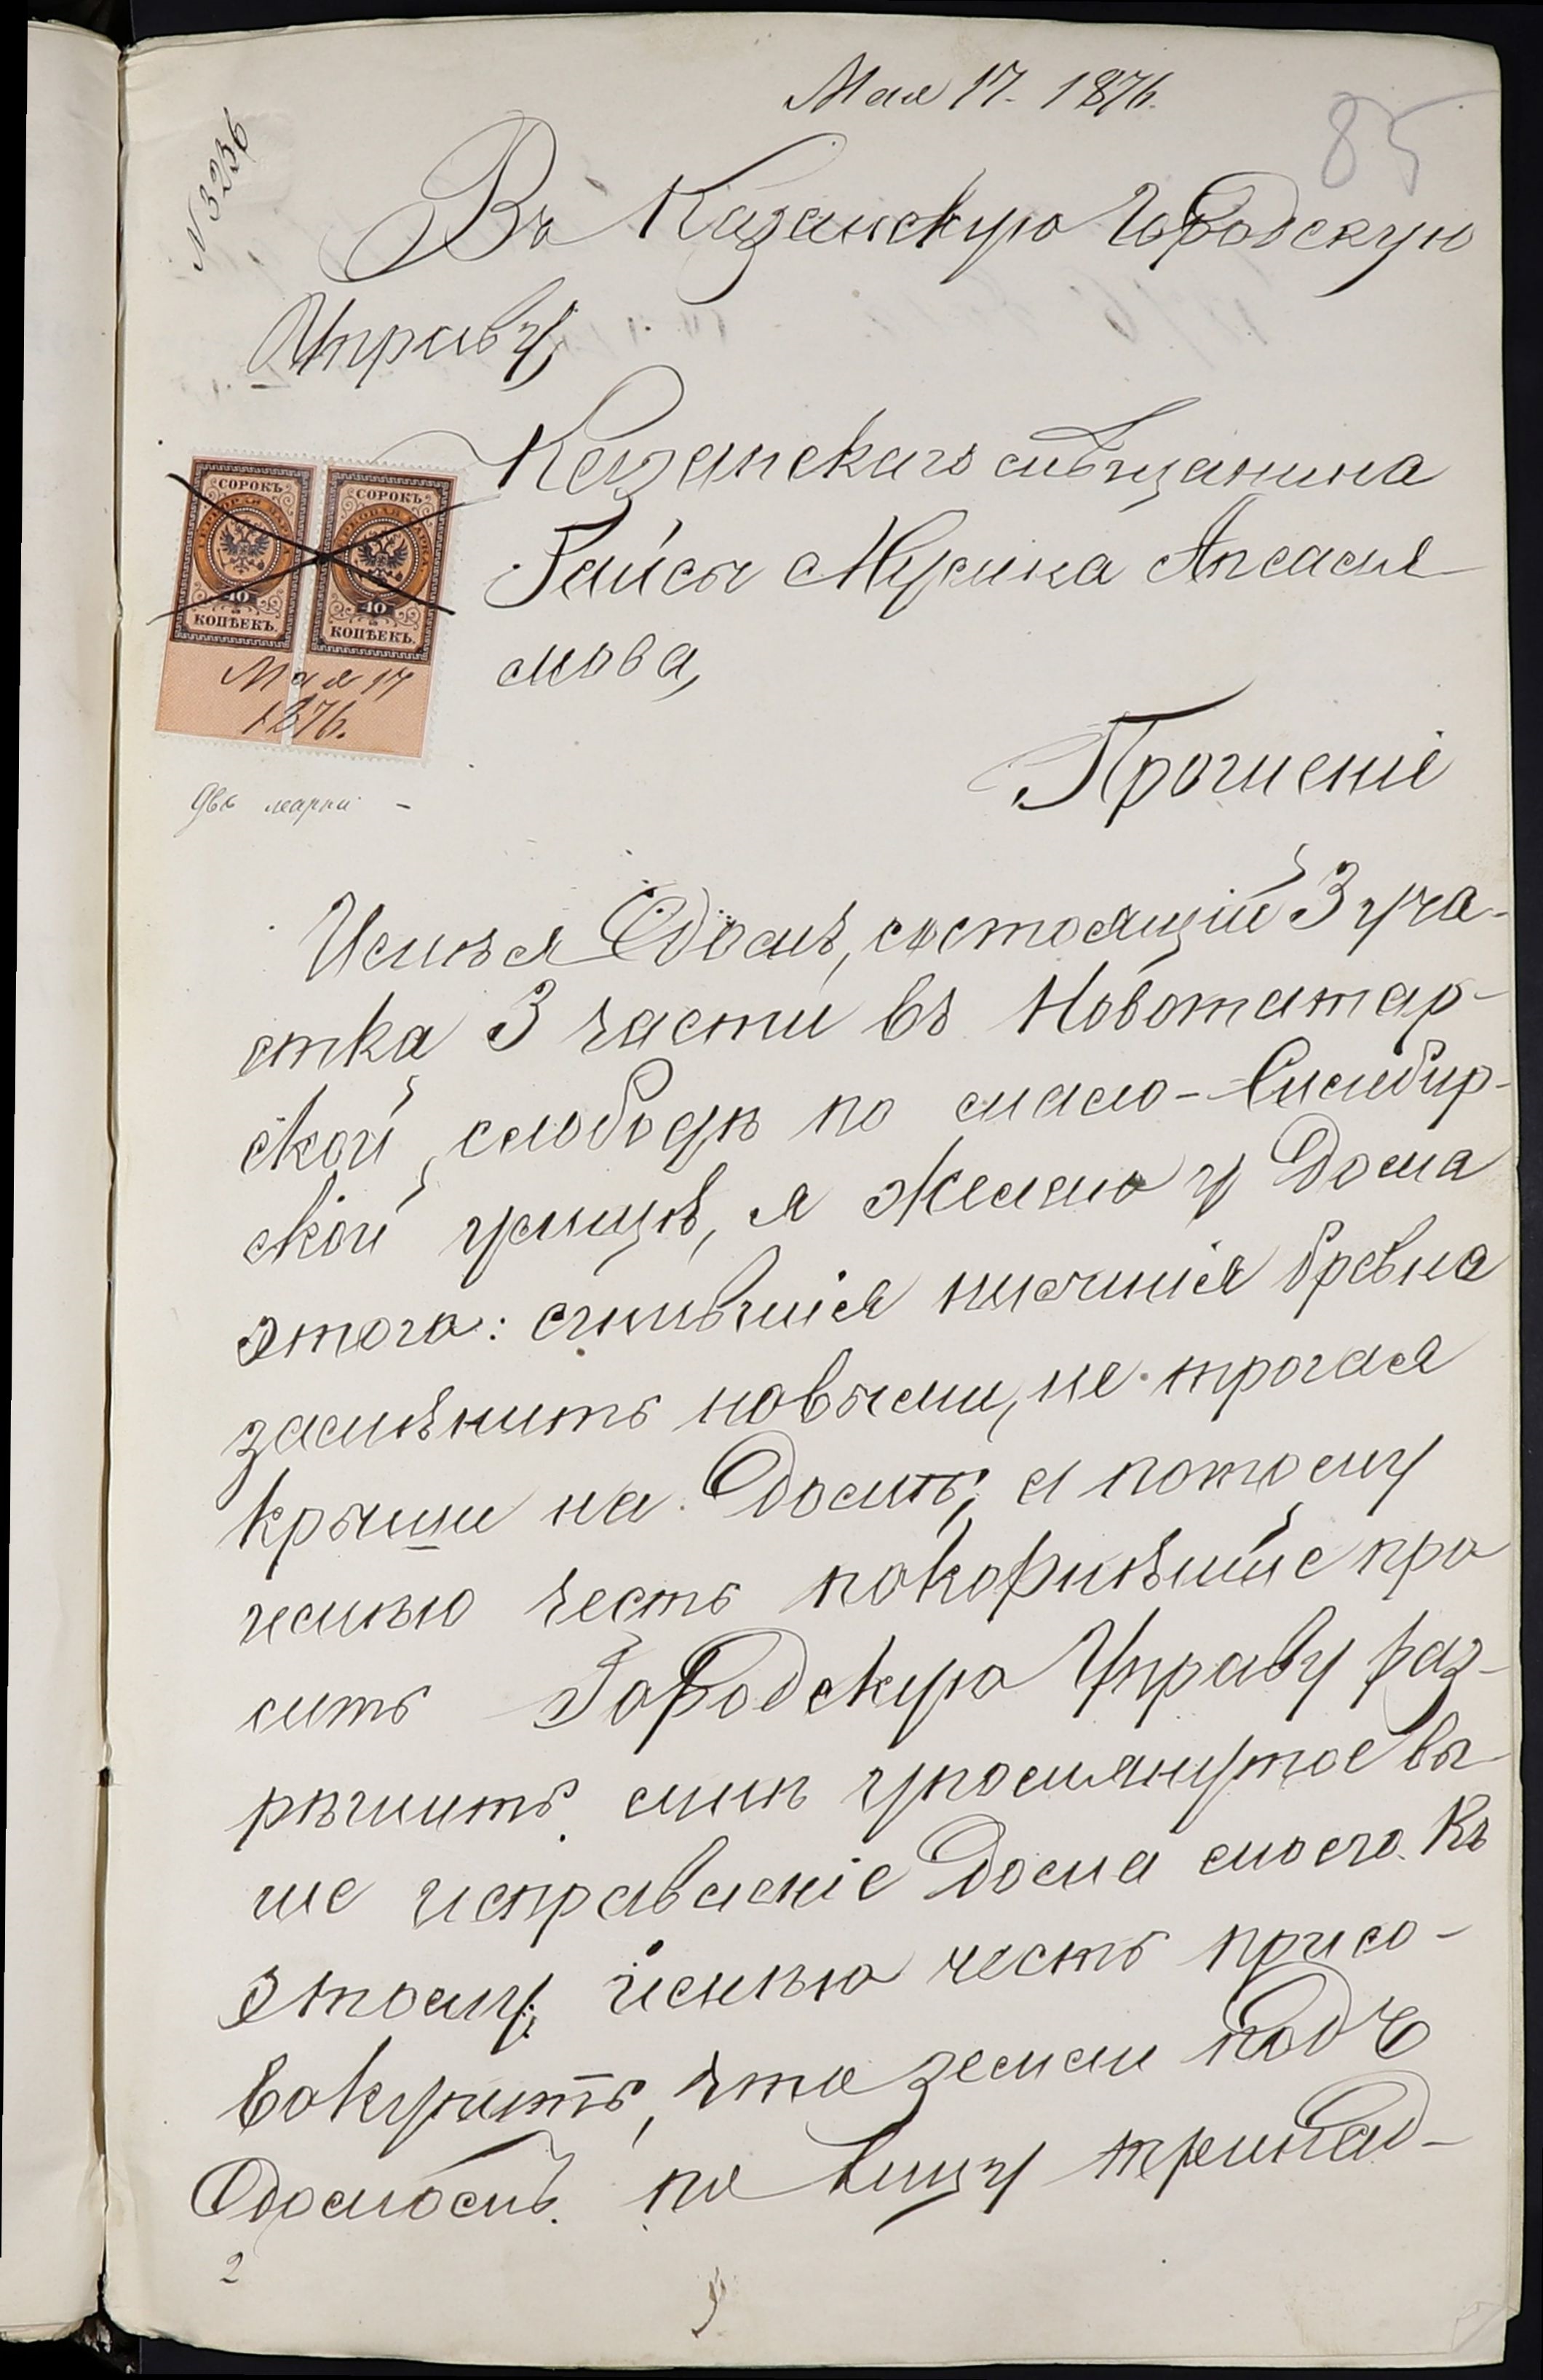 Мая 17. 1876.
85
N 3236
Въ Казанскую Городскую
Управу,
Казанскаго мѣщанина
Гайсы Мусина Апсаля-
мова,
СОРОКЪ
ГЕРБОВАЯ МАРКА
40
КОПѢЕКЪ.
СОРОКЪ
ГЕРБОВАЯ МАРКА
40
КОПѢЕКЪ.
Мая 17
1876.
двѣ марки -
Прошеніе
Имѣя Домъ, состоящій 3 уча-
стка 3 части въ Новотатар-
ской слободѣ по мало-Симбир-
ской улицѣ, я желаю у Дома
этого: сгнившія нижнія бревна
замѣнить новыми, не трогая
крыши на Домѣ; а потому
имѣю честь покорнѣйше про
сить Городскую Управу раз-
рѣшить мнѣ упомянутое вы-
ше исправленіе Дома моего. Къ
этому, имѣю честь присо-
вокупить, что земли подъ
Домомъ по лицу тринад-
2